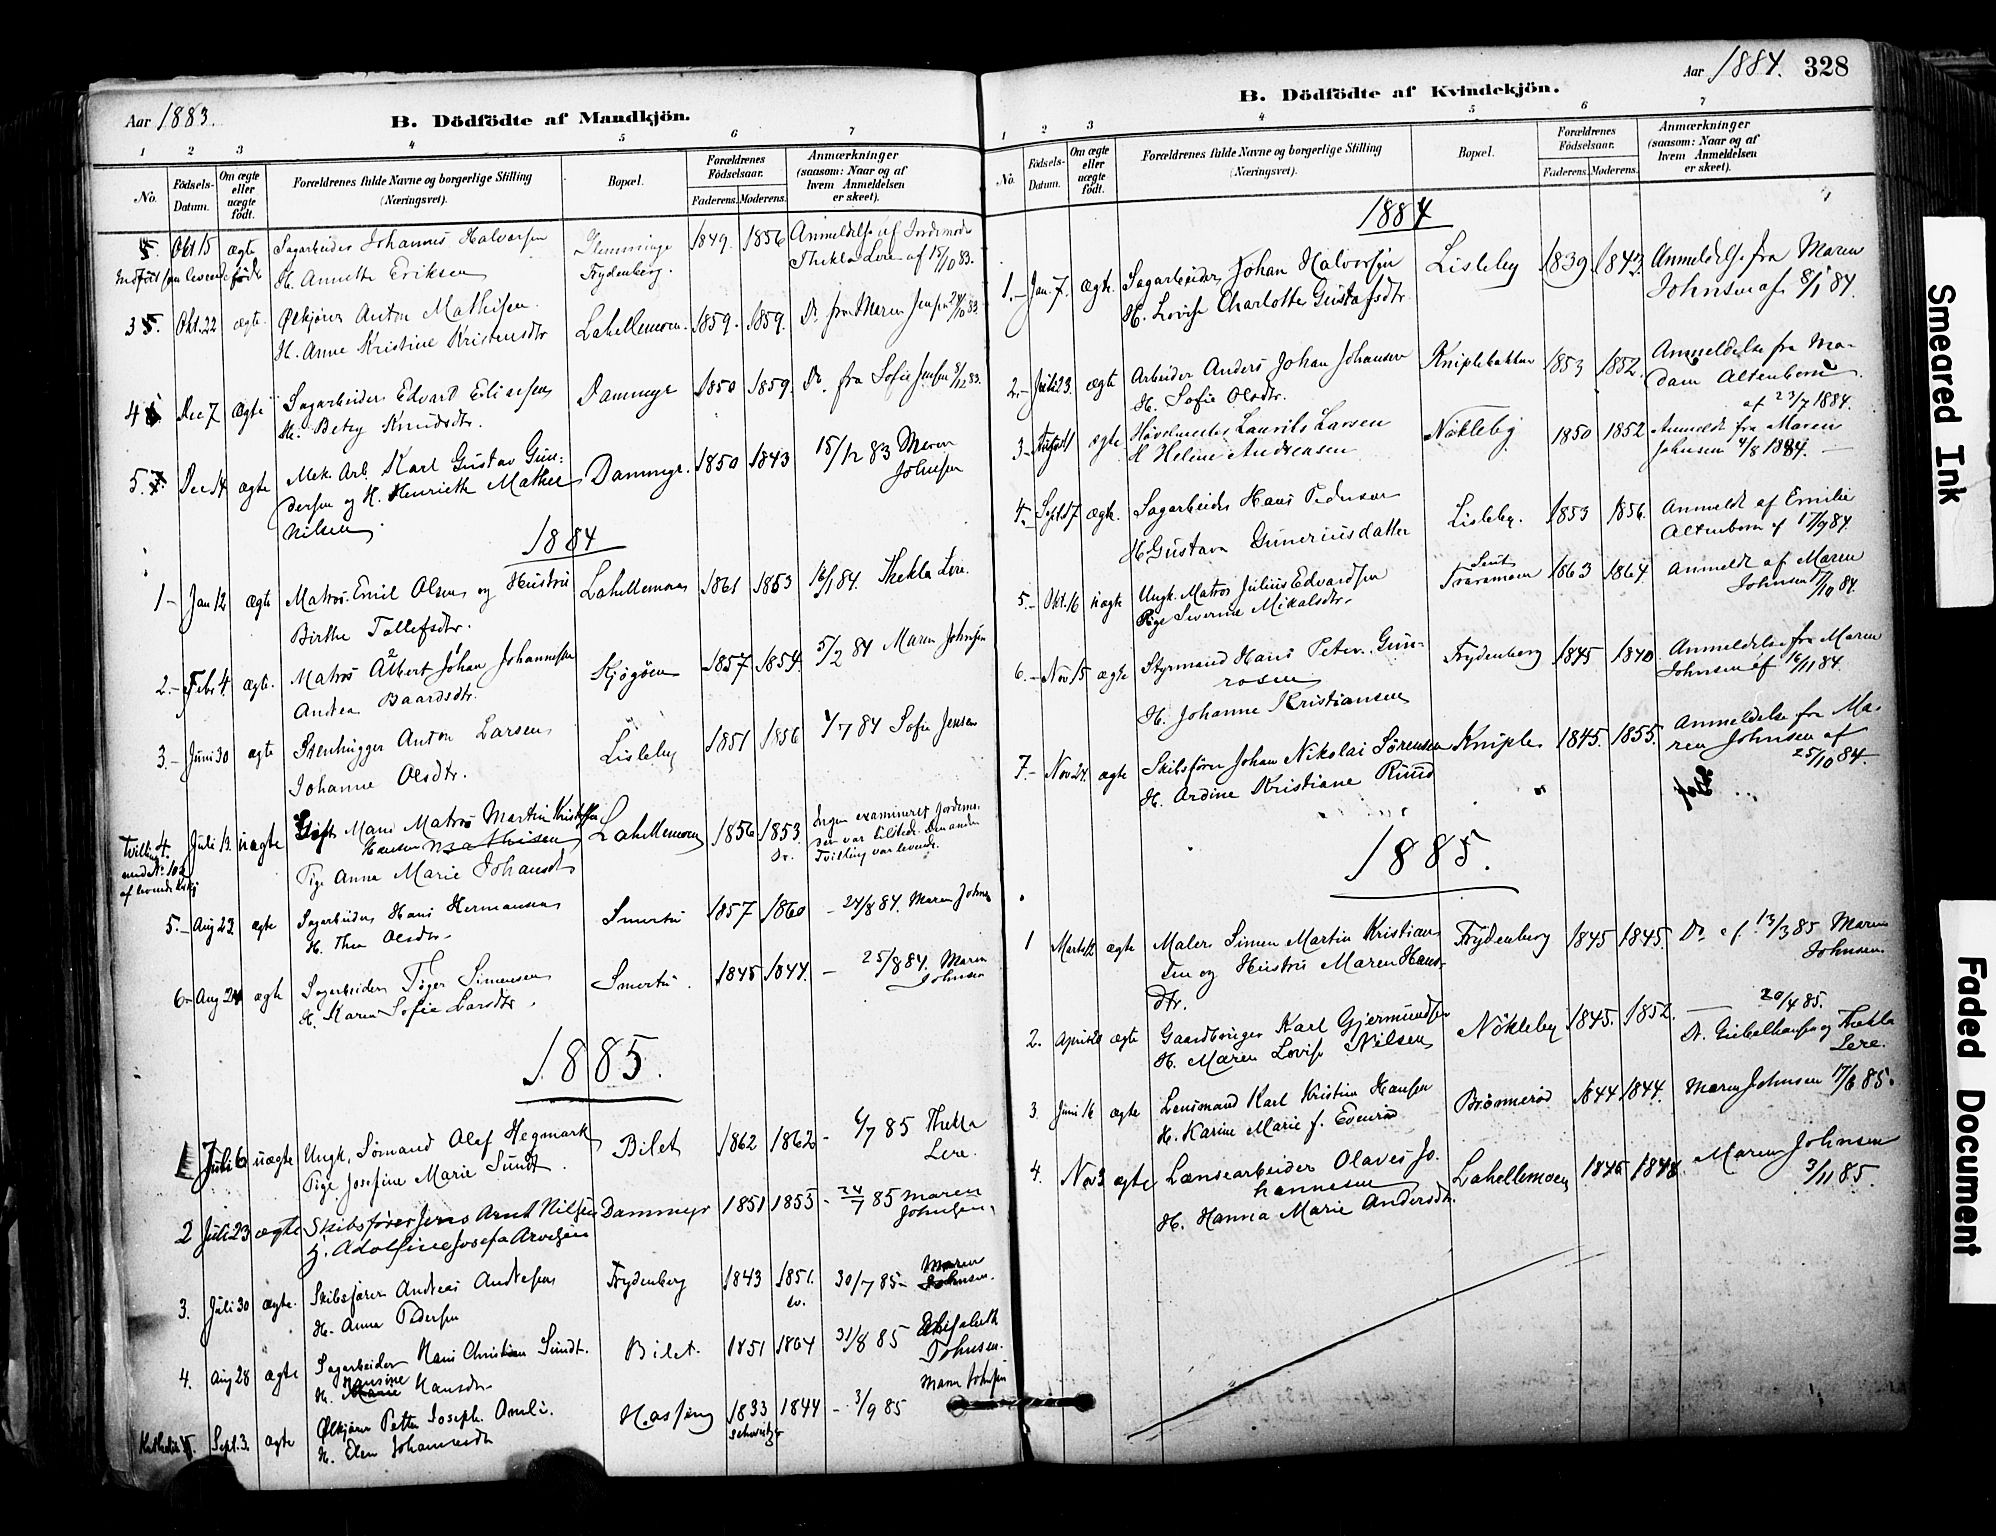 Aar 1883.
B. Dödfödte af Mandkjön.
1 2 3 4 5 6 7
No. Födsels-Datum. Om ægte eller uægte födt. Forældrenes fulde Navne og borgerlige Stilling (Næringsvei). Bopæl. Forældrenes Födselsaar. Faderens. Moderens. Anmærkninger (saasom: Naar og af hvem Anmeldelsen er skeet).
Okt 15 ægte Sagarbeider Johannes Halvorsen 1849. 1856 Anmeldelse af
H. Annette Eriksen Frydenberg. Thekla Lere af 15/10 83.
3 Okt. 22 ægte Ølkjører Anton Mathisen Lahellemoen. 1859. 1859. Do. fra Maren Jensen
H. Anne Kristine Kristensdtr
4 Dec 7 ægte Sagarbeider Edvart Eliassen Dammyr 1850 1859. Do. fra Sofie Jensen 8/12 83.
H. Betzy Knudsdtr.
5. Dec 14 ægte Mek. Arb. Karl Gustav Gun- Dammyr. 1850 1843 15/12 83 Maren
dersen og H. Henriette Mathea Johnsen
Nilsen
1884
1 - Jan 12 ægte Matros Emil Olsen og Hustru Lahellemoen 1861 1853 16/1 84. Thekla Lere.
Birthe Tollefsdtr.
2. - Febr 4 ægte. Matros Albert Johan Johannesen Kjøgøen 1857 1854. 5/2 84 Maren Johnsen
Andrea Baardsdtr.
3. - Juni 30 ægte Stenhugger Anton Larsen Lisleby 1851 1856 1/7 84 Sofie Jensen
Johanne Olsdtr.
4. Juli 13. uægte Gift Mand Matros Martin Kristoffer Lahellemoen 1856 1853. Ingen examineret Jordemo-
Tvilling Hansen Mathisen der var tilstede. Den anden
med No. 102 Pige Anna Marie Johansdt Tvilling var levende.
af levende
5. - Aug 23 ægte Sagarbeider Hans Hermansen Smertu 1857 1860 - 24/8 84. Maren Johnsen
H. Thea Olsdtr.
6 - Aug 24 ægte Sagarbeider Tøger Simensen Smertu. 1845 1844. - 25/8 84. Maren
H. Karen Sofie Larsdtr. Johnsen
1885.
1 Juli 6 uægte Ungk. Sømand Olaf Hegmark Bilet 1862 1862 - 6/7 85 Thekla
Pige Josefine Marie Sundt. Lere.
2 Juli 23 ægte Skibsfører Jens Arnt Nilsen Dammyr 1851 1855 - 24/7 85 Maren
H. Adolfine Josefa Arvesen Johnsen.
3. Juli 30 ægte. Skibsfører Andreas Andresen Frydenberg 1843 1851. 30/7 85 - Maren
H. Anna Pedersen Johnsen.
4. Aug 28 ægte Sagarbeider Hans Christian Sundt. Bilet. 1851 1864 31/8 85 Elisabeth
H. Hansine Hansdtr Johnsen.
Sept. 3. ægte Ølkjører Petter Joseph 1833 1844 - 3/9 85 Maren Johnsen
H. Elen Johannesdtr Schweitz
Aar 1884. 328
B. Dödfödte af Kvindekjön.
1 2 3 4 5 6 7
No. Födsels-Datum. Om ægte eller uægte födt. Forældrenes fulde Navne og borgerlige Stilling (Næringsvei). Bopæl. Forældrenes Födselsaar. Faderens. Moderens. Anmærkninger (saasom: Naar og af hvem Anmeldelsen er skeet).
1884
1. - Jan. 7. ægte. Sagarbeider Johan Halvorsen Lisleby 1839 1843. Anmeldelse fra Maren
H. Lovise Charlotte Gustafsdtr. Johnsen af 8/1 84.
2. - Juli 23. ægte Arbeider Anders Johan Johansen Kniplebakken 1853 1852. Anmeldelse fra Ma-
H. Sofie Olsdtr. dam Altenborn
af 23/7 1884.
3 - ægte Høvlmester Laurits Larsen Nökleby 1850 1852 Anmeldt fra Maren
H Helene Andreasen Johnsen 4/8 1884.
4. Sept. 17 ægte. Sagarbeider Hans Pedersen Lisleby. 1853 1856. Anmeldt af Emilie
H Gustava Guneriusdatter Altenborn af 17/9 84.
5. - Okt. 16 uægte Ungk. Matros Julius Edvardsen Traramoen 1863 1864. Anmeldt af Maren
Pige Severine Mikalsdtr. Johnsen 17/10 84.
6. - Nov 15 ægte Styrmand Hans Peter Gun- Frydenberg 1845 1840. Anmeldelse fra Maren
rosen Johnsen af 16/11 84.
H. Johanne Kristiansen
7. - Nov 24. ægte Skibsfører Johan Nikolai Sørensen Kniple. 1845. 1855. Anmeldelse fra Ma-
H. Ardine Kristiane Ruud ren Johnsen af
25/10 84.
1885.
1 Marts 12 ægte Maler Simen Martin Kristian- Frydenberg 1845 1845. Do. af 13/3 85 Maren
sen og Hustru Maren Hans- Johnsen.
dtr.
2. April ægte Gaardbruger Karl Gjermundsen Nökleby 1845. 1852. 20/4 85.
H. Maren Lovise Nilsen Dr. Giebelhausen og Thekla
Lere.
3 Juni 16 ægte Lensmand Karl Kristian Hansen 1844 1844. Maren Johnsen 17/6 85.
H. Karine Marie f. Evenrød
4. Nov 3 ægte Lænsearbeider Olaves Jo- Lahellemoen 1846 1848. Maren Johnsen
hannesen 3/11 85.
H. Hanna Marie Andersdtr.
Smeared Ink
Faded Document